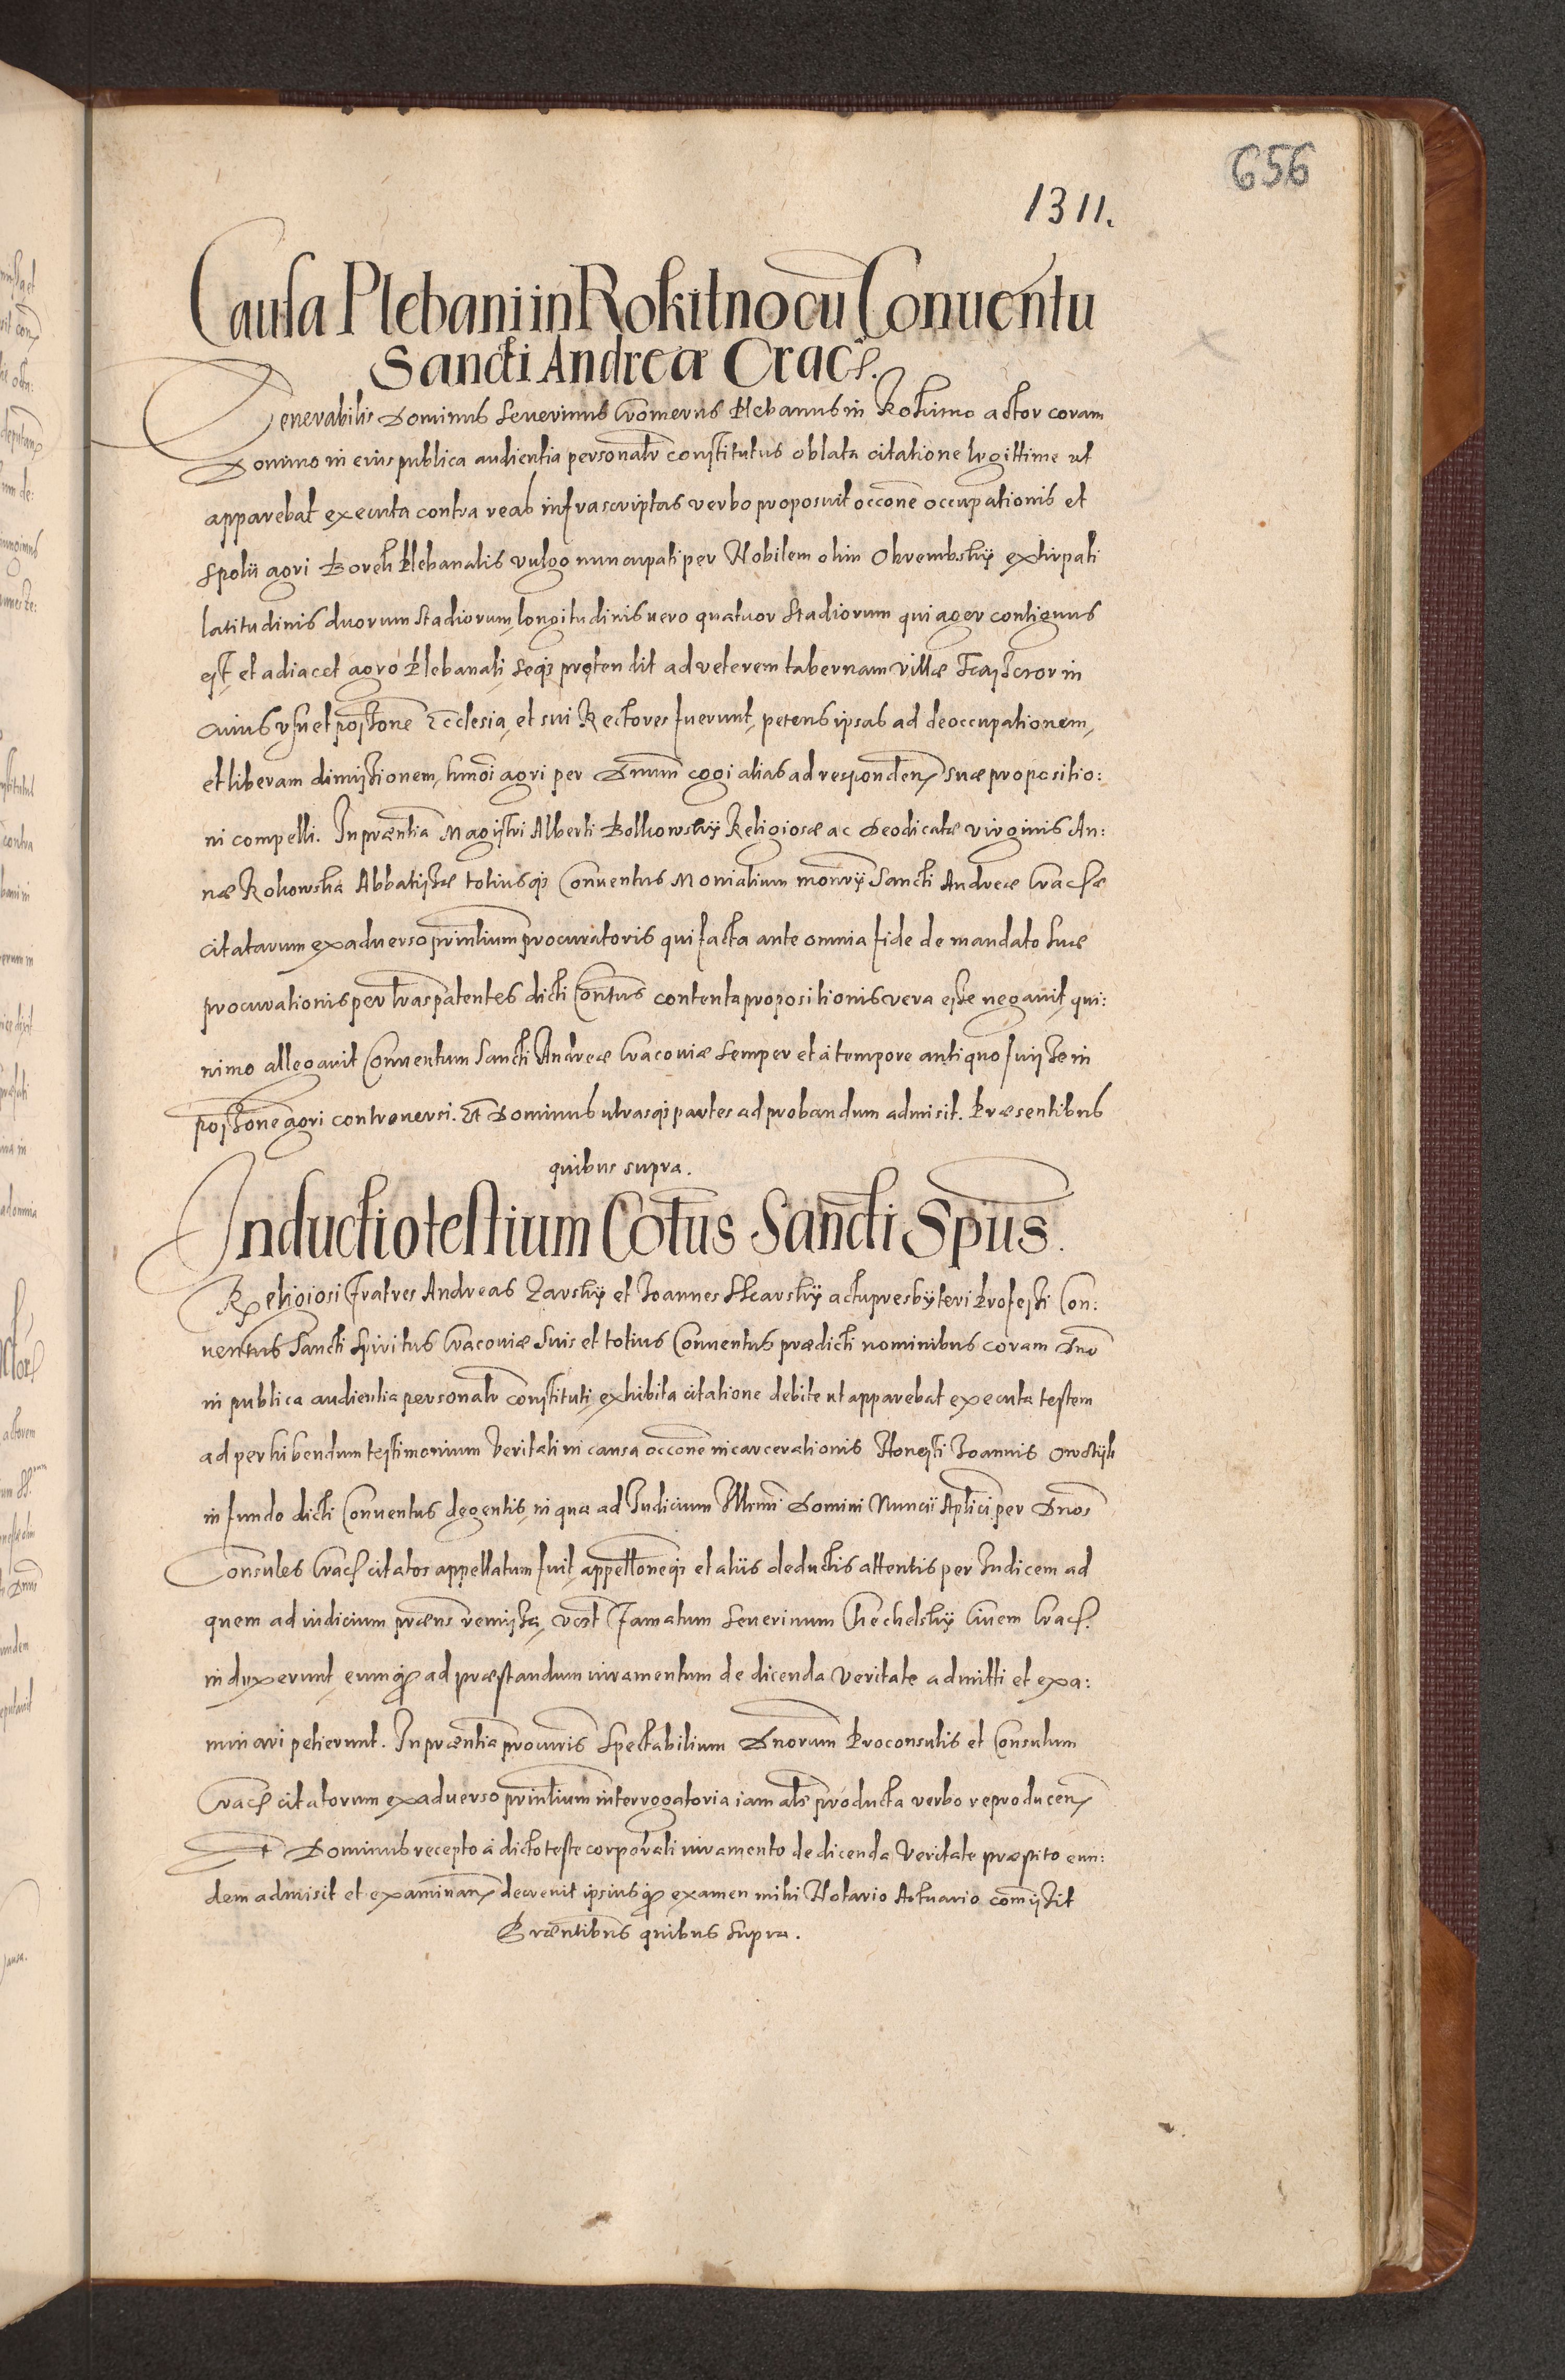 656
1311.
Causa Plebani in Rokitno cū Conuentu
Sancti Andreæ Crac.
Venerabilis Dominus Seuerinus Cromerus Plebanus in Rokitno actor coram
Domino in eius publica audientia personalr̄ constitutus oblata citatione legittime ut
apparebat executa contra reas infrascriptas verbo proposuit occōne occupationis et
spolii agri Borek Plebanalis vulgo nuncupati per Nobilem olim Okrembsky extirpati
latitudinis duorum stadiorum, longitudinis uero quatuor stadiorum qui ager contiguus
est, et adiacet agro Plebanali, seqȝ protendit ad veterem tabernam villæ in
cuius vsu et possōne Ecclesia, et sui Rectores fuerunt, petens ipsas ad deoccupationem,
et liberam dimissionem, hmōi agri per Dnum cogi alias ad responden suæ propositio:
ni compelli. In præntia Magistri Alberti Bolkowsky Religiosæ ac Deodicatæ virginis An:
næ Rokowska Abbatissæ totiusqȝ Conuentus Monialium monrÿ Sancti Andreæ Craæ
citatarum ex aduerso printium procuratoris qui facta ante omnia fide de mandato suæ
procurationis per lras patentes dicti Contus contenta propositionis vera esse negauit, qui:
nimo allegauit Conuentum Sancti Andreæ Cracouiæ semper et à tempore antiquo fuisse in
possōne agri controuersi. Et Dominus utrasqȝ partes ad probandum admisit. Præsentibus
quibus supra.
Inductio testium Cotus Sancti Spūs.
Religiosi Fratres Andreas Zarsky et Joannes Skarsky actu presbyteri Professi Con:
uentus Sancti Spiritus Cracouiæ suis et totius Conuentus prædicti nominibus coram Dno
in publica audientia personalr̄ constituti, exhibita citatione debite ut apparebat executa testem
ad perhibendum testimonium Veritati in causa occōne incarcerationis Honesti Joannis
in fundo dicti Conuentus degentis, in qua ad Judicium Illrmi Domini Nuncii Aplici per Dnos
Consules Crac citatos appellatum fuit, appellōneqȝ et aliis deductis attentis per Judicem ad
quem ad iudicium præns remissa, vcƶt Famatum Seuerinum Chechelsky Ciuem Crac.
induxerunt, eumqȝ ad præstandum iuramentum de dicenda Veritate admitti et exa:
minari petierunt. In præntia procuris Spectabilium Dnorum Proconsulis et Consulum
Crac citatorum ex aduerso printium interrogatoria iam als producta verbo reproducen
Et Dominus recepto à dicto teste corporali iuramento de dicenda Veritate præstito eun:
dem admisit et examinan decreuit ipsiusqȝ examen mihi Notario Actuario commisit
Præntibus quibus supra.